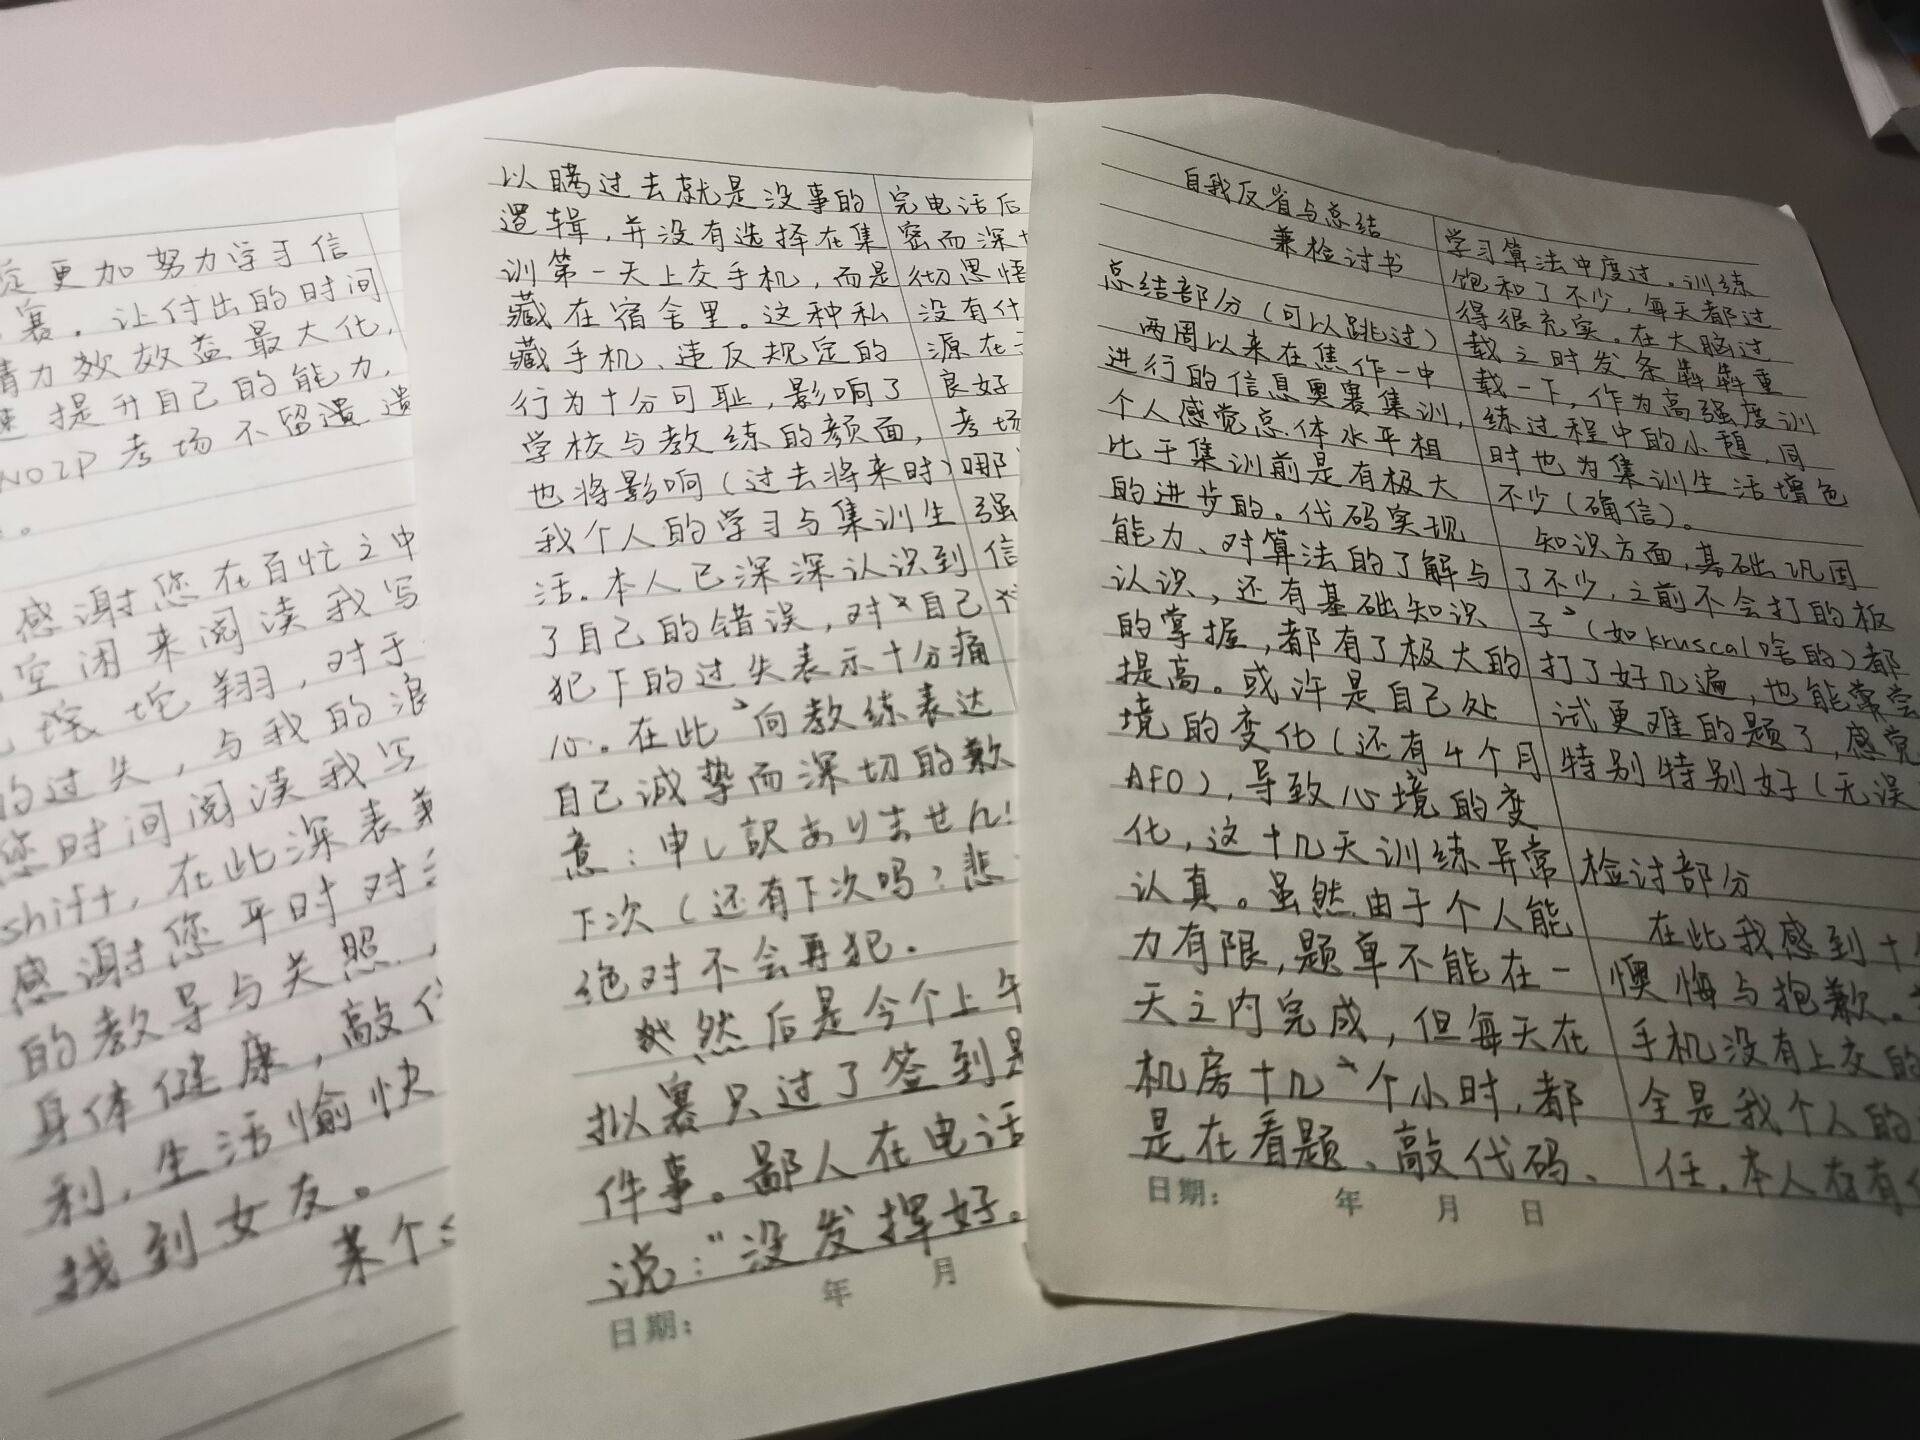 自我反省与总结
兼检讨书
总结部分(可以跳过)
两周以来在焦作一中
进行的信息奥赛集训,
个人感觉总体水平相
比于集训前是有极大
的进步的。代码实现
能力、对算法的了解与
认识,还有基础知识
的掌握,都有了极大的
提高。或许是自己处
境的变化(还有4个月
AFO),导致心境的变
化,这十几天训练异常
认真。虽然由于个人能
力有限,题单不能在一
天之内完成,但每天在
机房十几个小时,都
是在看题、敲代码、
学习算法中度过。训练
饱和了不少,每天都过
得很充实。在大脑过
载之时发条犇犇重
载一下,作为高强度训
练过程中的小憩,同
时也为集训生活增色
不少(确信)。
知识方面,基础巩固
了不少,之前不会打的板
子(如kruscal啥的)都
打了好几遍,也能尝尝
试更难的题了,感觉
特别特别好(无误
检讨部分
在此我感到十
懊悔与抱歉。
手机没有上交的
全是我个人的
任。本人存有
日期: 年 月 日
以瞒过去就是没事的
逻辑,并没有选择在集
训第一天上交手机,而是
藏在宿舍里。这种私
藏手机、违反规定的
行为十分可耻,影响了
学校与教练的颜面,
也将影响(过去将来时)
我个人的学习与集训生
活。本人已深深认识到
了自己的错误,对自己
犯下的过失表示十分痛
心。在此向教练表达
自己诚挚而深切的歉
意:申し訳ありません!
下次(还有下次吗?悲
绝对不会再犯。
然后是今个上午
拟赛只过了签到
件事。鄙人在电话
说:"没发挥好。
完电话后
密而深
彻思悟
没有什
源在于
良好
考场
哪
强
信
日期: 年 月
定更加努力学习信
赛。让付出的时间
精力效效益最大化,
速提升自己的能力,
NOIP考场不留遗遗
。
感谢您在百忙之中
空闲来阅读我写
垞翔,对于
的过失,与我的浪
您时间阅读我写
shift,在此深表歉
感谢您平时对
的教导与关照,
身体健康,敲代
利,生活愉快
找到女友。
某个